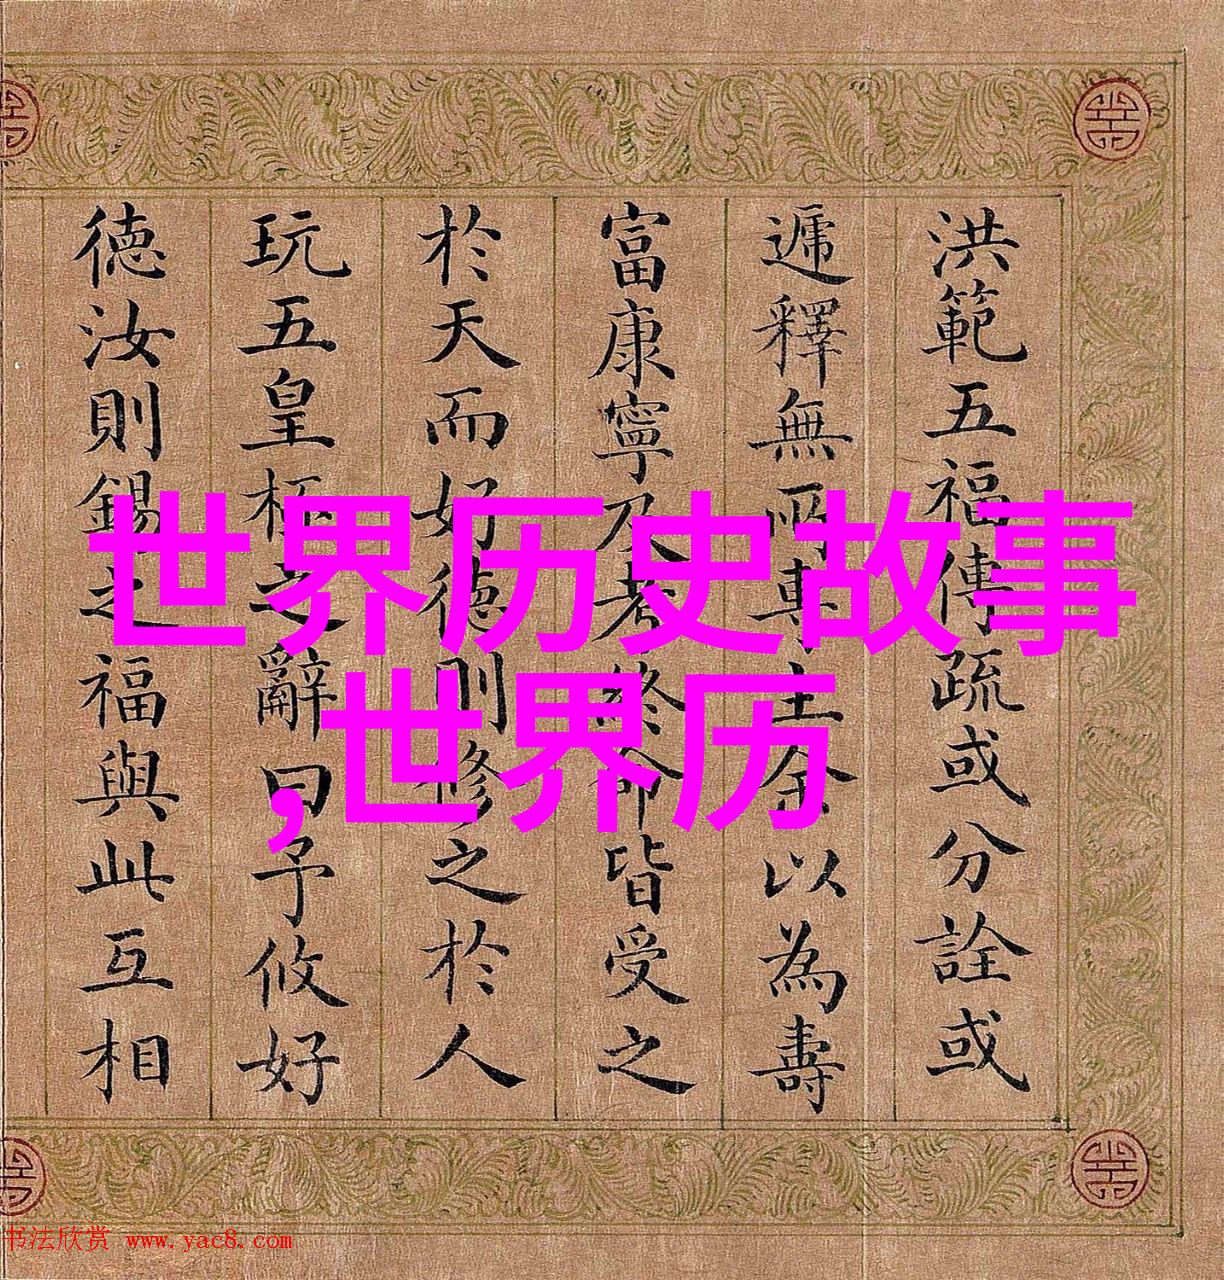 洪範五福傳疏或分詮或
遞釋無所專主余以為壽
富康寧乃考終命皆受之
於天而好德則修之於人
玩五皇極之辭曰予攸好
德汝則錫之福與此互相
世界历史故事
,世界历
书法欣赏 www.yac8.com